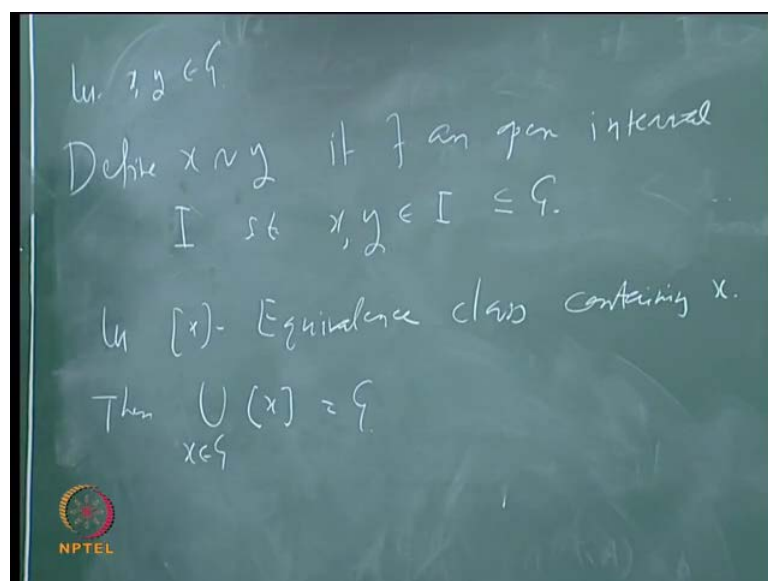 Let x, y ∈ G.
Define x ~ y if ∃ an open interval
I st x, y ∈ I ⊆ G.
Let [x] - Equivalence class containing x.
Then ⋃ [x] = G
x∈G
NPTEL